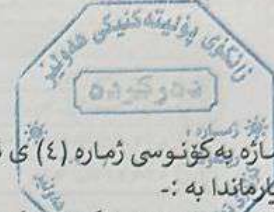 زانکۆی پۆلیتەکنیکی هەولێر
دەرکردە
ژمارە :
ـاژە بە کۆنـوسی ژمارە (٤) ی
یارماندا بە :-